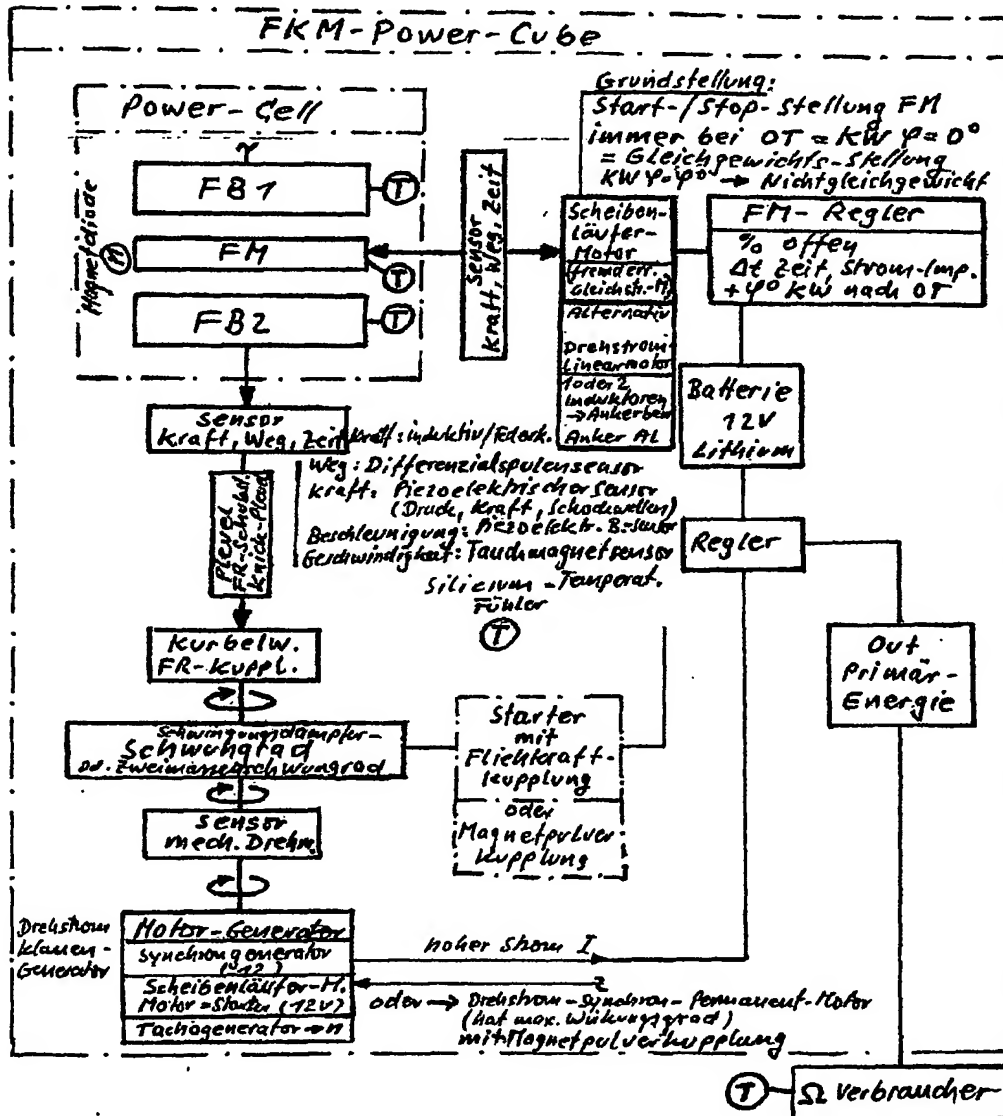 FKM-Power-Cube
Power-Cell
FB1
T
Magnetdiode
M
FM
T
FB2
T
Sensor
Kraft, Weg, Zeit
Grundstellung:
Start-/Stop-Stellung FM
immer bei OT = KW φ = 0°
= Gleichgewichts-Stellung
KW φ=φ° → Nichtgleichgewicht
Scheiben-
läufer-
Motor
(fremderr.
Gleichstr.-M)
Alternativ
Drehstrom-
Linearmotor
1 oder 2
Induktoren
→ Ankerbew
Anker AL
FM-Regler
% offen
Δt Zeit, Strom-Imp.
+φ° KW nach OT
Batterie
12V
Lithium
Regler
Out
Primär-
Energie
Sensor
Kraft, Weg, Zeit
Kraft: induktiv/Federk.
Weg: Differenzialspulensensor
Kraft: Piezoelektrischer Sensor
(Druck, Kraft, Schockwellen)
Beschleunigung: Piezoelektr. B-Sensor
Geschwindigkeit: Tauchmagnetsensor
Silicium-Temperat.
Fühler
T
Pleuel
Knick-Pleuel
Kurbelw.
FR-Kuppl.
Schwingungsdämpfer-
Schwungrad
od. Zweimassenschwungrad
Starter
mit
Fliehkraft-
kupplung
oder
Magnetpulver
Kupplung
Sensor
mech. Drehm.
Drehstrom
Klauen-
Generator
Motor-Generator
Synchrongenerator
Scheibenläufer-M.
Motor=Starter (12V)
Tachogenerator → n
hoher Strom I
oder → Drehstrom-Synchron-Permanent-Motor
(hat max. Wirkungsgrad)
mit Magnetpulverkupplung
T
Ω Verbraucher